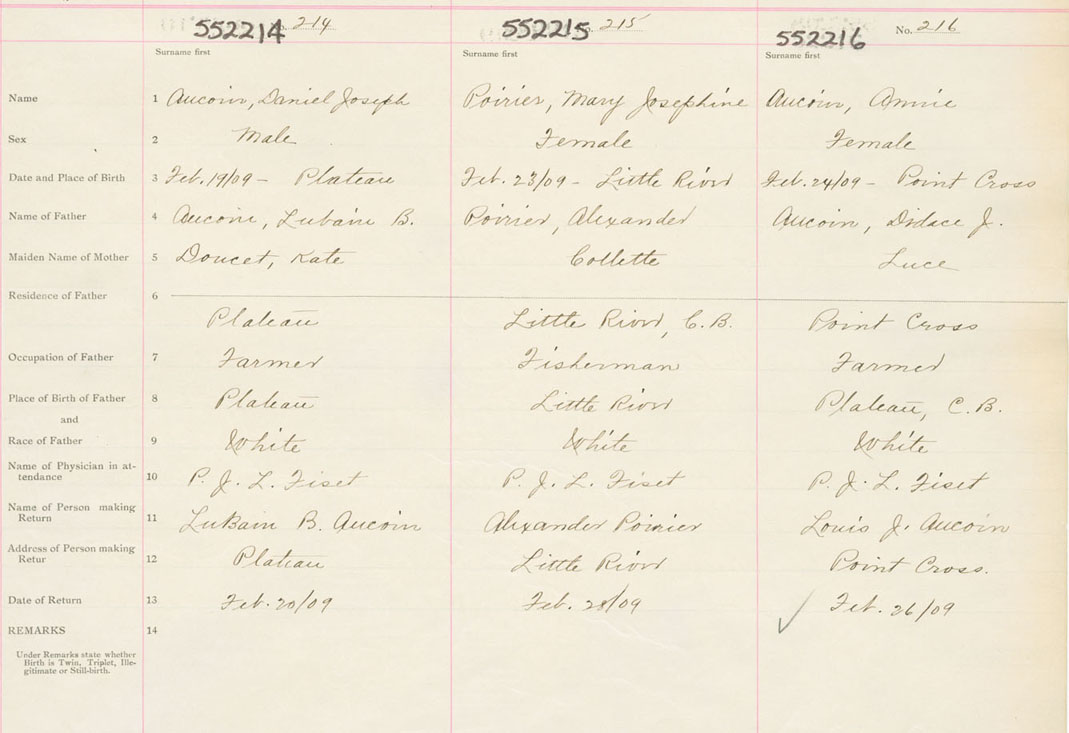 552214 No. 214 552215 No. 215 552216 No. 216
Surname first Surname first Surname first
Name 1 Aucoin, Daniel Joseph Poirier, Mary Josephine Aucoin, Annie
Sex 2 Male Female Female
Date and Place of Birth 3 Feb. 19/09 - Plateau Feb. 23/09 - Little River Feb. 24/09 - Point Cross
Name of Father 4 Aucoin, Lubain B. Poirier, Alexander Aucoin, Didace J.
Maiden Name of Mother 5 Doucet, Kate Collette Luce
Residence of Father 6
Plateau Little River, C.B. Point Cross
Occupation of Father 7 Farmer Fisherman Farmer
Place of Birth of Father 8 Plateau Little River Plateau, C.B.
and
Race of Father 9 White White White
Name of Physician in at-
tendance 10 P. J. L. Fiset P. J. L. Fiset P. J. L. Fiset
Name of Person making
Return 11 LuBain B. Aucoin Alexander Poirier Louis J. Aucoin
Address of Person making
Retur 12 Plateau Little River Point Cross.
Date of Return 13 Feb. 20/09 Feb. 28/09 Feb. 26/09
REMARKS 14
Under Remarks state whether
Birth is Twin, Triplet, Ille-
gitimate or Still-birth.